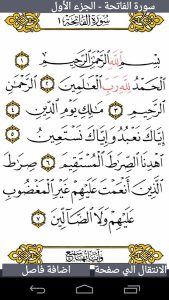 سورة الفاتحة - الجزء الأول
سُورَةُ الْفَاتِحَةِ
بِسْمِ ٱللَّهِ ٱلرَّحْمَٰنِ ٱلرَّحِيمِ ١
ٱلْحَمْدُ لِلَّهِ رَبِّ ٱلْعَٰلَمِينَ ٢ ٱلرَّحْمَٰنِ
ٱلرَّحِيمِ ٣ مَٰلِكِ يَوْمِ ٱلدِّينِ ٤
إِيَّاكَ نَعْبُدُ وَإِيَّاكَ نَسْتَعِينُ ٥
ٱهْدِنَا ٱلصِّرَٰطَ ٱلْمُسْتَقِيمَ ٦ صِرَٰطَ
ٱلَّذِينَ أَنْعَمْتَ عَلَيْهِمْ غَيْرِ ٱلْمَغْضُوبِ
عَلَيْهِمْ وَلَا ٱلضَّآلِّينَ ٧
الانتقال الي صفحة
اضافة فاصل